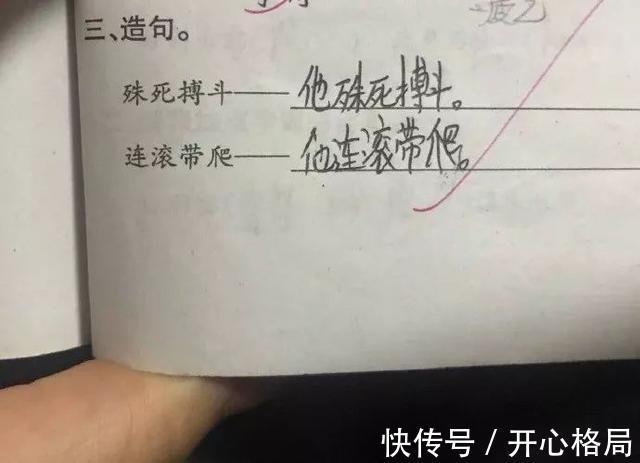 疲乏
三、造句。
殊死搏斗——他殊死搏斗。
连滚带爬——他连滚带爬。
快传号 / 开心格局